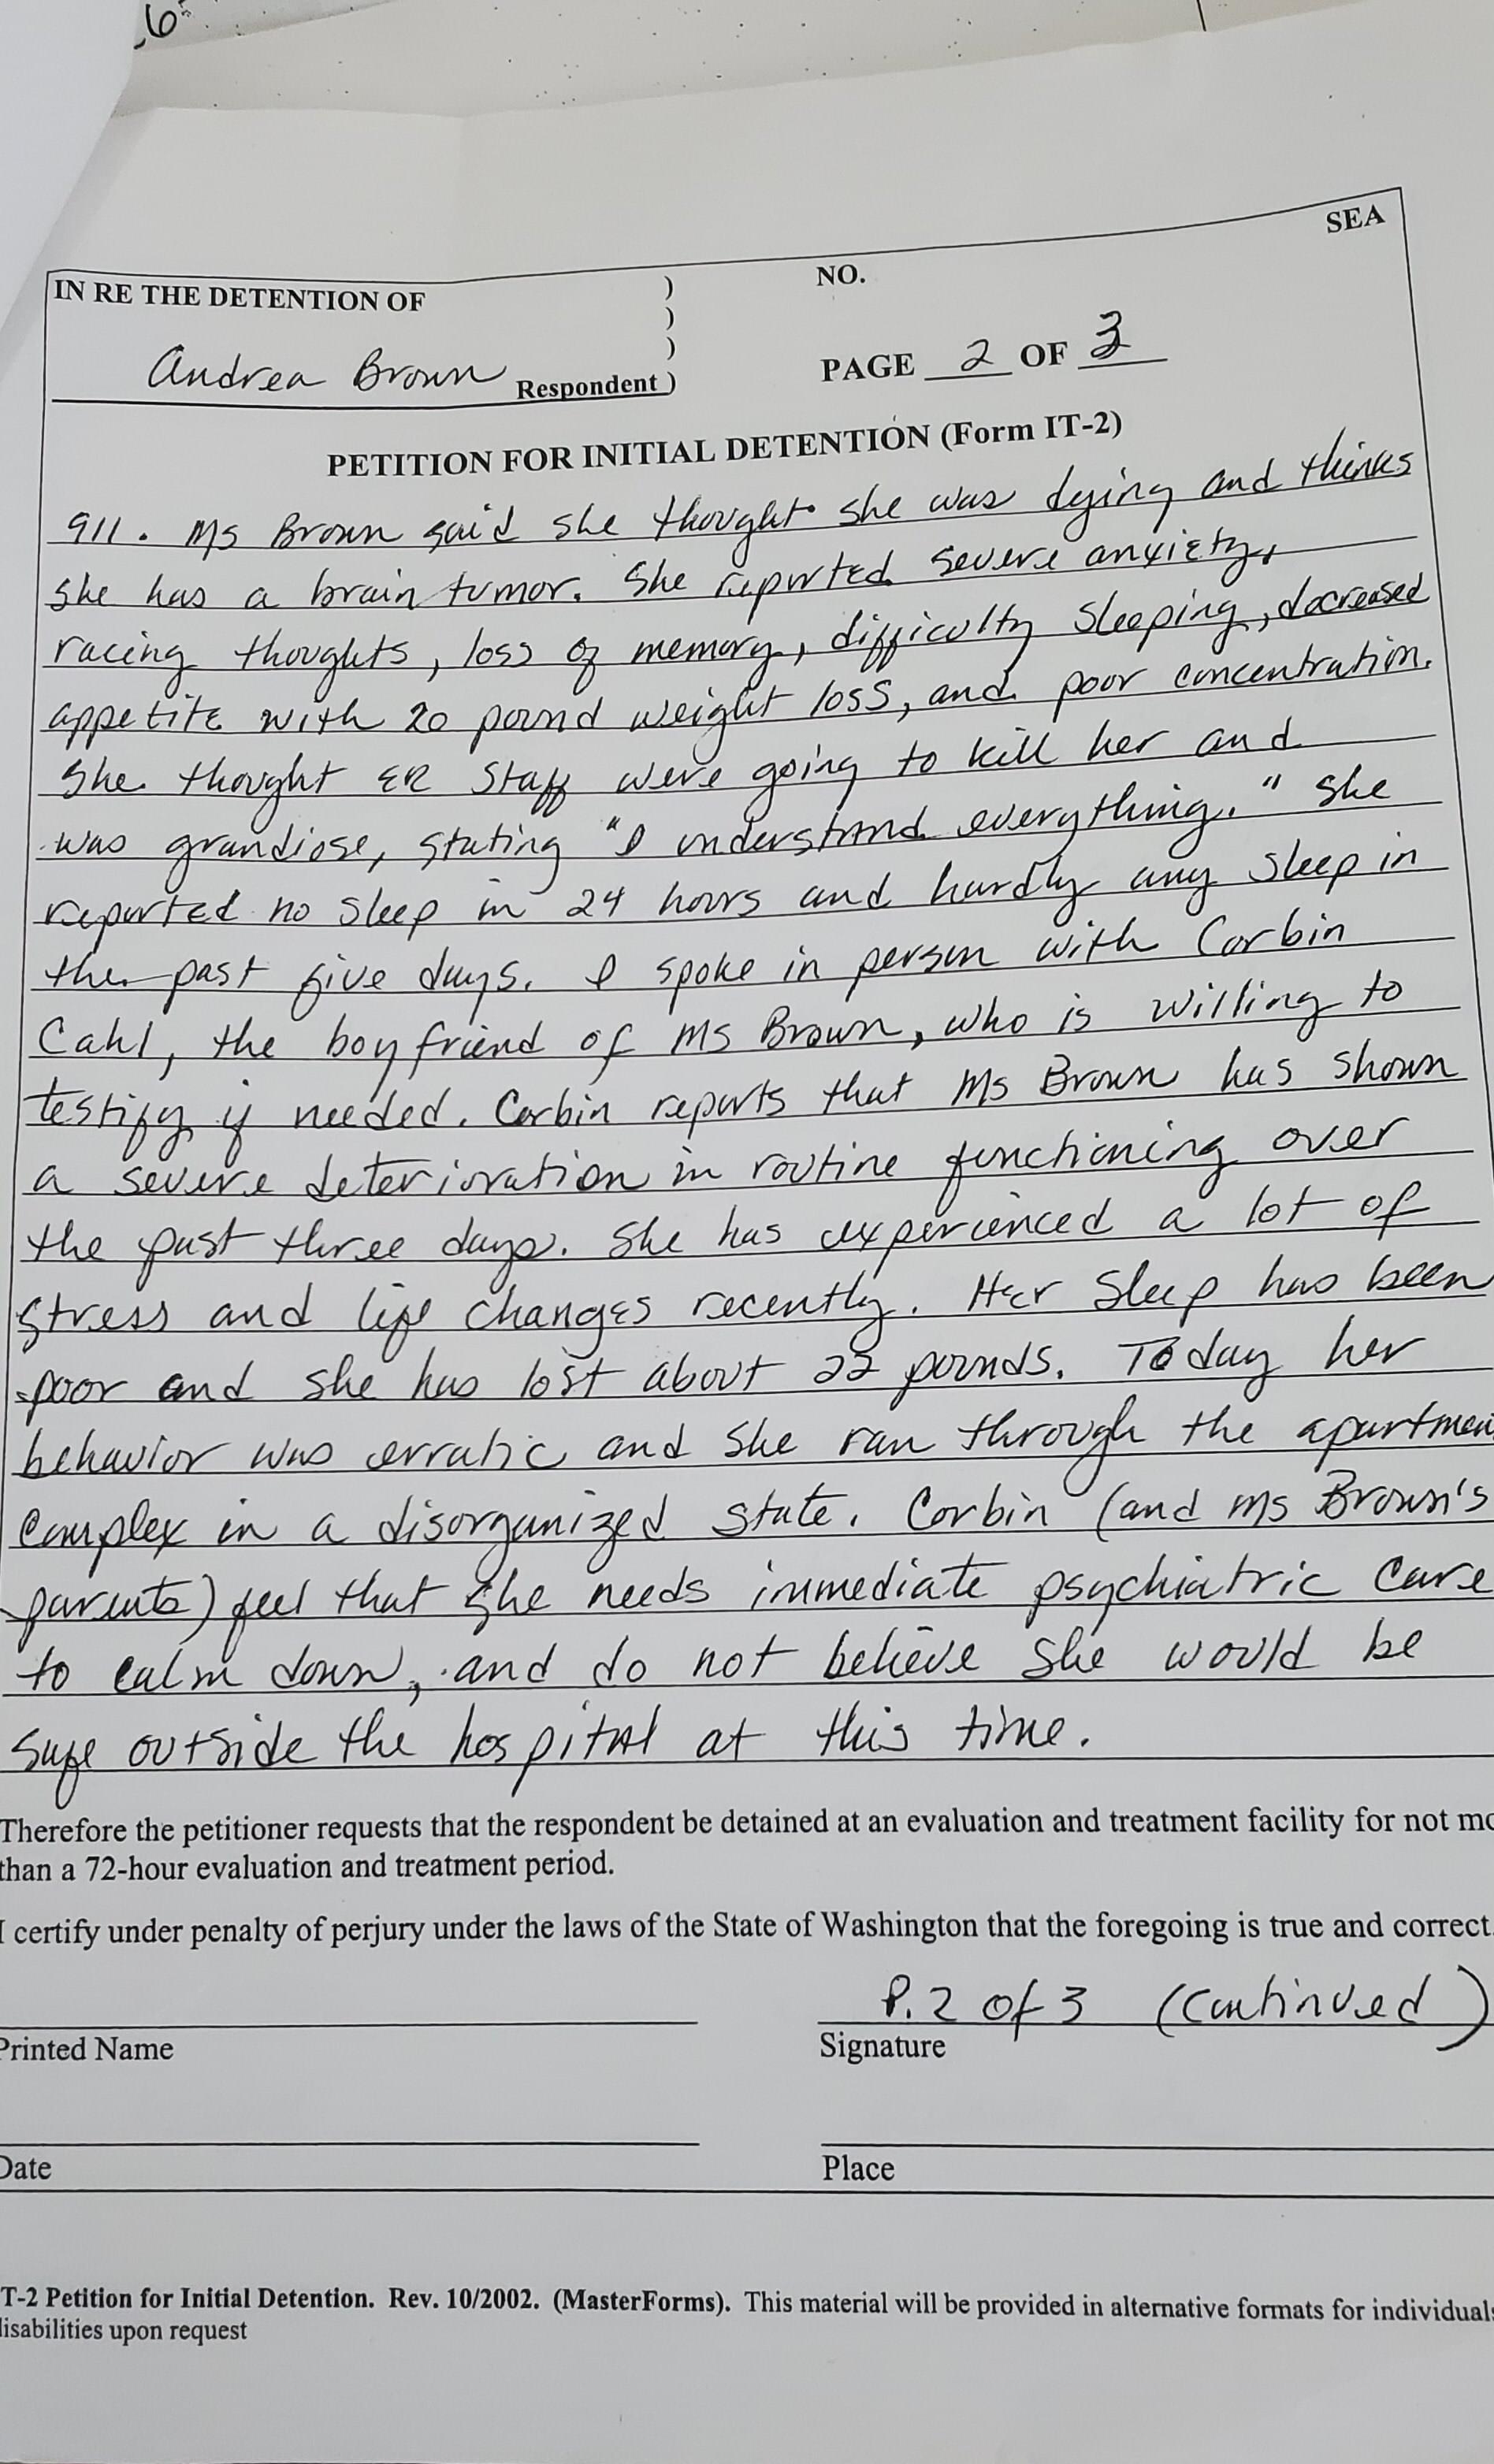 6
SEA
IN RE THE DETENTION OF )
NO.
)
)
Andrea Brown Respondent )
PAGE 2 OF 3
PETITION FOR INITIAL DETENTION (Form IT-2)
911. Ms Brown said she thought she was dying and thinks
she has a brain tumor. She reported severe anxiety,
racing thoughts, loss of memory, difficulty sleeping, decreased
appetite with 20 pound weight loss, and poor concentration.
She thought ER Staff were going to kill her and
was grandiose, stating "I understand everything." She
reported no sleep in 24 hours and hardly any sleep in
the past five days. I spoke in person with Corbin
Cahl, the boyfriend of Ms Brown, who is willing to
testify if needed. Corbin reports that Ms Brown has shown
a severe deterioration in routine functioning over
the past three days. She has experienced a lot of
stress and life changes recently. Her sleep has been
poor and she has lost about 22 pounds. Today her
behavior was erratic and she ran through the apartmen
complex in a disorganized state. Corbin (and Ms Brown's
parents) feel that she needs immediate psychiatric care
to calm down, and do not believe she would be
safe outside the hospital at this time.
Therefore the petitioner requests that the respondent be detained at an evaluation and treatment facility for not mo
than a 72-hour evaluation and treatment period.
I certify under penalty of perjury under the laws of the State of Washington that the foregoing is true and correct.
P. 2 of 3 (continued)
Printed Name
Signature
Date
Place
T-2 Petition for Initial Detention. Rev. 10/2002. (MasterForms). This material will be provided in alternative formats for individuals
disabilities upon request